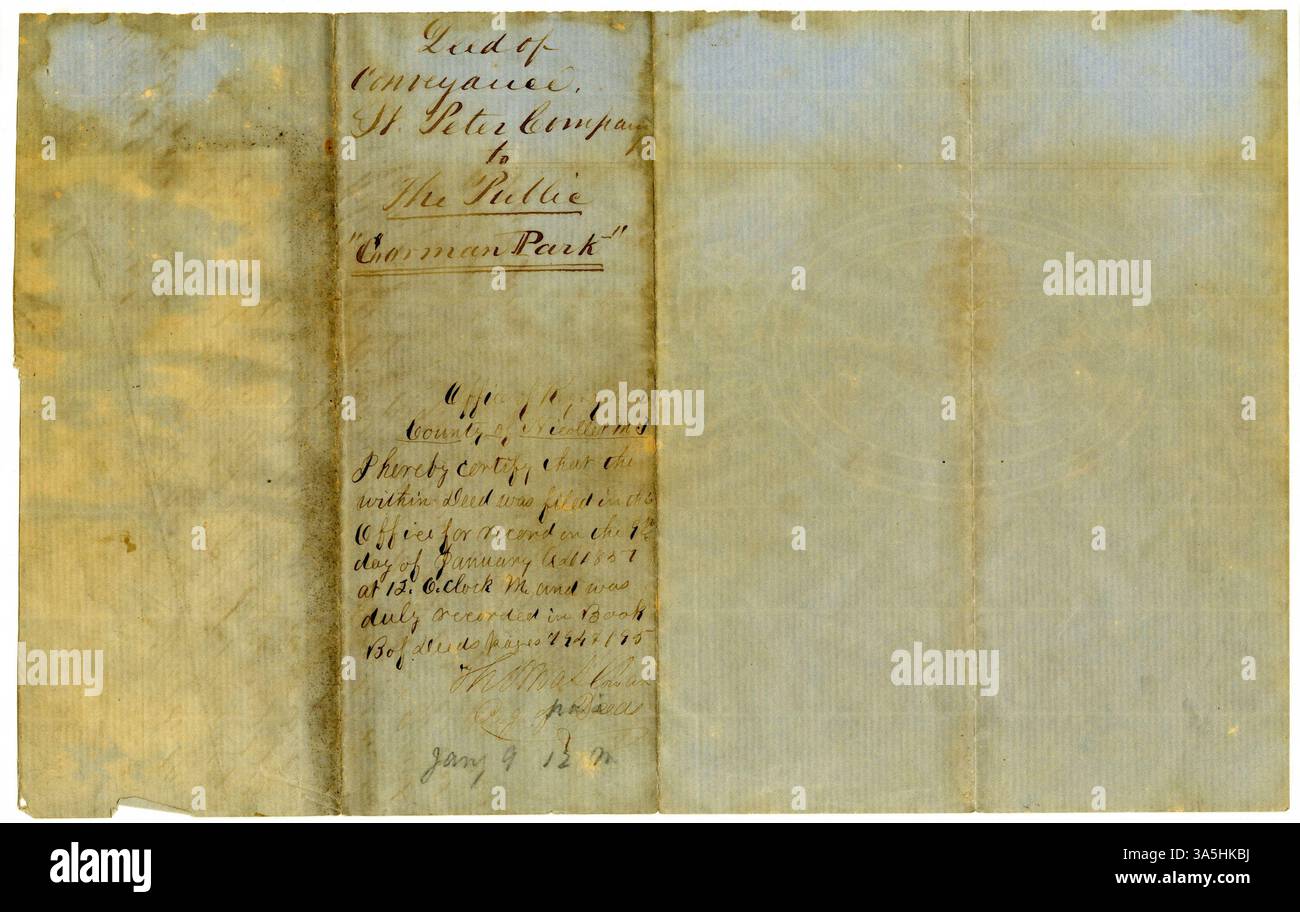 Deed of
Conveyance.
St. Peter Company
to
The Public
"Gorman Park"
Office of Reg
County of Nicollet
I hereby certify that the
within Deed was filed in this
Office for record on the 9th
day of January AD 1857
at 12. O.Clock M. and was
duly recorded in Book
B of Deeds pages
Thomas
Reg of Deeds
paid
Jany 9 12 M
alamy
Image ID: 3A5HKBJ
www.alamy.com